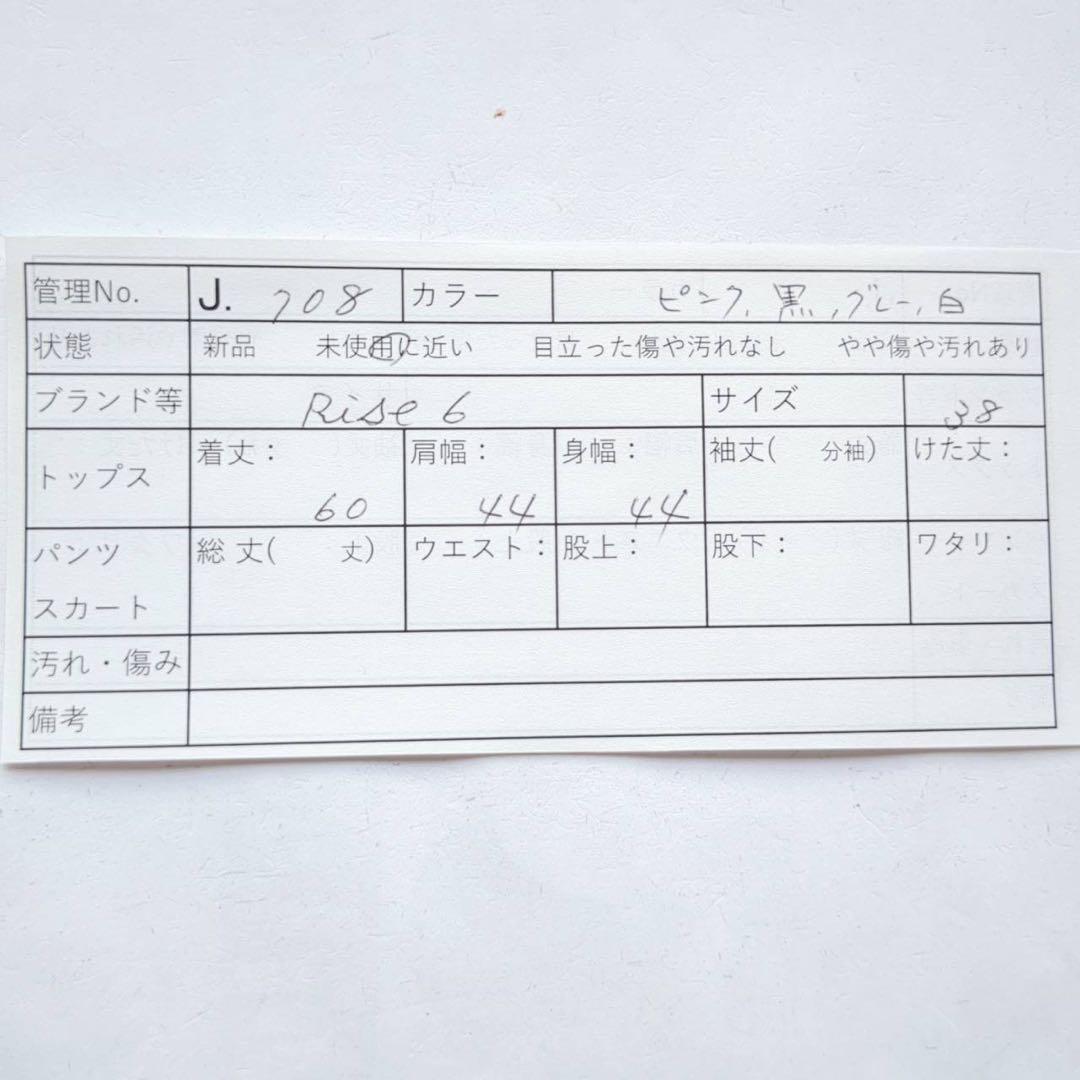 管理No. J. 708 カラー ピンク、黒、グレー、白
状態 新品 未使用に近い 目立った傷や汚れなし やや傷や汚れあり
ブランド等 Rise 6 サイズ 38
トップス 着丈： 60 肩幅： 44 身幅： 44 袖丈( 分袖) けた丈：
パンツ 総丈( 丈) ウエスト： 股上： 股下： ワタリ：
スカート
汚れ・傷み
備考